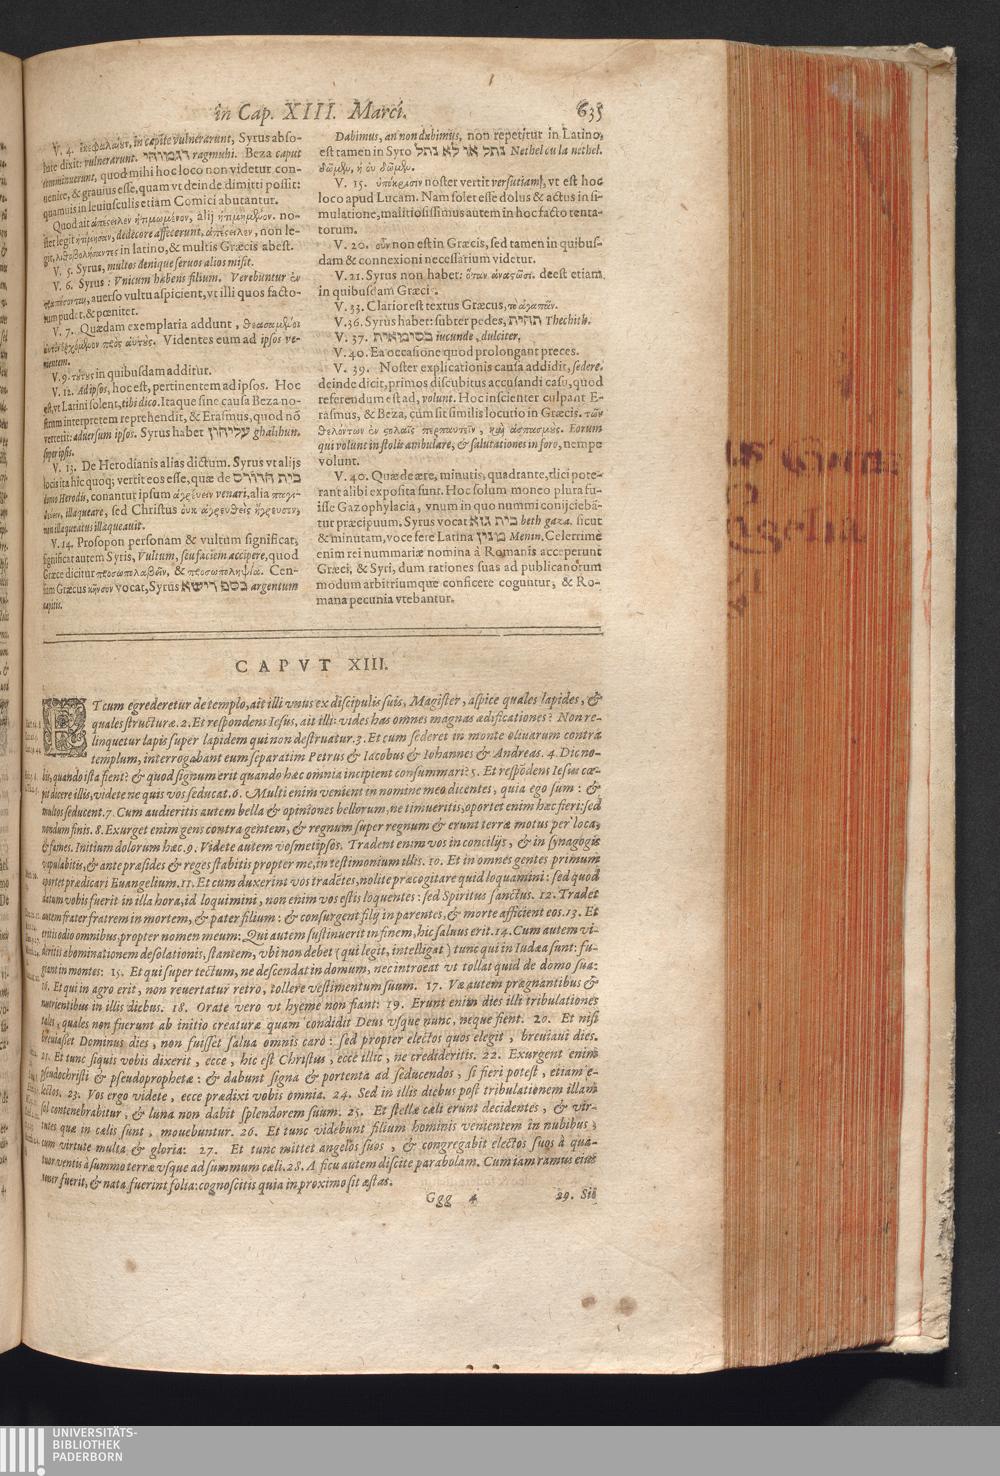 in Cap. XIII. Marci.
635
V. 4. ἐκεφαλαίωσ, in capite vulnerarunt, Syrus abso-
lute dixit: vulnerarunt. ragmuhi. Beza caput
comminuerunt, quod mihi hoc loco non videtur con-
uenire, & grauius esse, quam vt deinde dimitti possit:
quamuis in leuiusculis etiam Comici abutantur.
Quod ait ἀπέςειλεν ἠτιμωμένον, alij no-
ster legit ἠτίμησαν, dedecore affecerunt, ἀπέςειλεν, non le-
git, λιθοβολήσαντες in latino, & multis Græcis abest.
V. 5. Syrus, multos denique seruos alios misit.
V. 6. Syrus: Vnicum habens filium. Verebuntur ἐν
auerso vultu aspicient, vt illi quos facto-
rum pudet. & pœnitet.
V. 7. Quædam exemplaria addunt, θεασαμένοι
αὐτὸν ἐρχόμενον πρὸς αὐτούς. Videntes eum ad ipsos ve-
nientem.
V. 9. τούτους in quibusdam additur.
V. 12. Ad ipsos, hoc est, pertinentem ad ipsos. Hoc
est, vt Latini solent, tibi dico. Itaque sine causa Beza no-
strum interpretem reprehendit, & Erasmus, quod nō
vertetit: aduersum ipsos. Syrus habet עליהון ghalihun.
super ipsis.
V. 13. De Herodianis alias dictum. Syrus vt alijs
locis ita hic quoq; vertit eos esse, quæ de בית הרודס
domo Herodis, conantur ipsum ἀγρεύειν venari, alia
illaqueare, sed Christus οὐκ ἀγρευθεὶς ἤγρευσεν,
non illaqueatus illaqueauit.
V. 14. Prosopon personam & vultum significat,
significat autem Syris, Vultum, seu faciem accipere, quod
Græce dicitur προσωπολαβεῖν, & προσωποληψία. Cen-
sum Græcus κῆνσον vocat, Syrus כסף רישא argentum
capitis.
Dabimus, an non dabimus, non repetitur in Latino,
est tamen in Syro נתל או לא נתל Nethel cu la nethel.
δῶμεν, ἢ οὐ δῶμεν.
V. 15. ὑπόκρισιν noster vertit versutiam, vt est hoc
loco apud Lucam. Nam solet esse dolus & actus in si-
mulatione, malitiosissimus autem in hoc facto tenta-
torum.
V. 20. οὖν non est in Græcis, sed tamen in quibus-
dam & connexioni necessarium videtur.
V. 21. Syrus non habet: ὅταν ἀναςῶσι. deest etiam
in quibusdam Græci.
V. 33. Clarior est textus Græcus, τὸ ἀγαπᾶν.
V. 36. Syrus habet: subter pedes, תחית Thechith.
V. 37. בסימאית iucunde, dulciter.
V. 40. Ea occasione quod prolongant preces.
V. 39. Noster explicationis causa addidit, sedere.
deinde dicit, primos discubitus accusandi casu, quod
referendum est ad, volunt. Hoc inscienter culpant E-
rasmus, & Beza, cùm sit similis locutio in Græcis. τῶν
θελόντων ἐν ςολαῖς περιπατεῖν, καὶ ἀσπασμούς. Eorum
qui volunt in stolis ambulare, & salutationes in foro, nempe
volunt.
V. 40. Quæ de ære, minutis, quadrante, dici pote-
rant alibi exposita sunt. Hoc solum moneo plura fu-
isse Gazophylacia, vnum in quo nummi conijciebā-
tur præcipuum. Syrus vocat בית גזא beth gaza. sicut
& minutam, voce fere Latina מנין Menin. Celerrime
enim rei nummariæ nomina à Romanis acceperunt
Græci, & Syri, dum rationes suas ad publicanorum
modum arbitriumque conficere coguntur, & Ro-
mana pecunia vtebantur.
CAPVT XIII.
ET cum egrederetur de templo, ait illi vnus ex discipulis suis, Magister, aspice quales lapides, &
quales structuræ. 2. Et respondens Iesus, ait illi: vides has omnes magnas ædificationes? Non re-
linquetur lapis super lapidem qui non destruatur. 3. Et cum sederet in monte oliuarum contra
templum, interrogabant eum separatim Petrus & Iacobus & Iohannes & Andreas. 4. Dic no-
bis, quando ista fient? & quod signum erit quando hæc omnia incipient consummari? 5. Et respōdens Iesus cæ-
pit dicere illis, videte ne quis vos seducat. 6. Multi enim venient in nomine meo dicentes, quia ego sum: &
multos seducent. 7. Cum audieritis autem bella & opiniones bellorum, ne timueritis, oportet enim hæc fieri: sed
nondum finis. 8. Exurget enim gens contra gentem, & regnum super regnum & erunt terræ motus per loca,
& fames. Initium dolorum hæc. 9. Videte autem vosmetipsos. Tradent enim vos in concilijs, & in synagogis
vapulabitis, & ante præsides & reges stabitis propter me, in testimonium illis. 10. Et in omnes gentes primum
oportet prædicari Euangelium. 11. Et cum duxerint vos tradētes, nolite præcogitare quid loquamini: sed quod
datum vobis fuerit in illa hora, id loquimini, non enim vos estis loquentes: sed Spiritus sanctus. 12. Tradet
autem frater fratrem in mortem, & pater filium: & consurgent filij in parentes, & morte afficient eos. 13. Et
eritis odio omnibus, propter nomen meum: Qui autem sustinuerit in finem, hic saluus erit. 14. Cum autem vi-
deritis abominationem desolationis, stantem, vbi non debet (qui legit, intelligat) tunc qui in Iudæa sunt: fu-
giant in montes: 15. Et qui super tectum, ne descendat in domum, nec introeat vt tollat quid de domo sua:
16. Et qui in agro erit, non reuertatur retro, tollere vestimentum suum. 17. Væ autem prægnantibus &
nutrientibus in illis diebus. 18. Orate vero vt hyeme non fiant: 19. Erunt enim dies illi tribulationes
tales, quales non fuerunt ab initio creaturæ quam condidit Deus vsque nunc, neque fient. 20. Et nisi
breuiasset Dominus dies, non fuisset salua omnis caro: sed propter electos quos elegit, breuiaui dies.
21. Et tunc siquis vobis dixerit, ecce, hic est Christus, ecce illic, ne credideritis. 22. Exurgent enim
pseudochristi & pseudoprophetæ: & dabunt signa & portenta ad seducendos, si fieri potest, etiam e-
lectos. 23. Vos ergo videte, ecce prædixi vobis omnia. 24. Sed in illis diebus post tribulationem illam
sol contenebrabitur, & luna non dabit splendorem suum. 25. Et stellæ cæli erunt decidentes, & vir-
tutes quæ in cælis sunt, mouebuntur. 26. Et tunc videbunt filium hominis venientem in nubibus;
cum virtute multa & gloria: 27. Et tunc mittet angelos suos, & congregabit electos suos à qua-
tuor ventis à summo terræ vsque ad summum cæli. 28. A ficu autem discite parabolam. Cum iam ramus eius
tener fuerit, & nata fuerint folia: cognoscitis quia in proximo sit æstas.
Ggg 4
29. Sit
UNIVERSITÄTS-
BIBLIOTHEK
PADERBORN